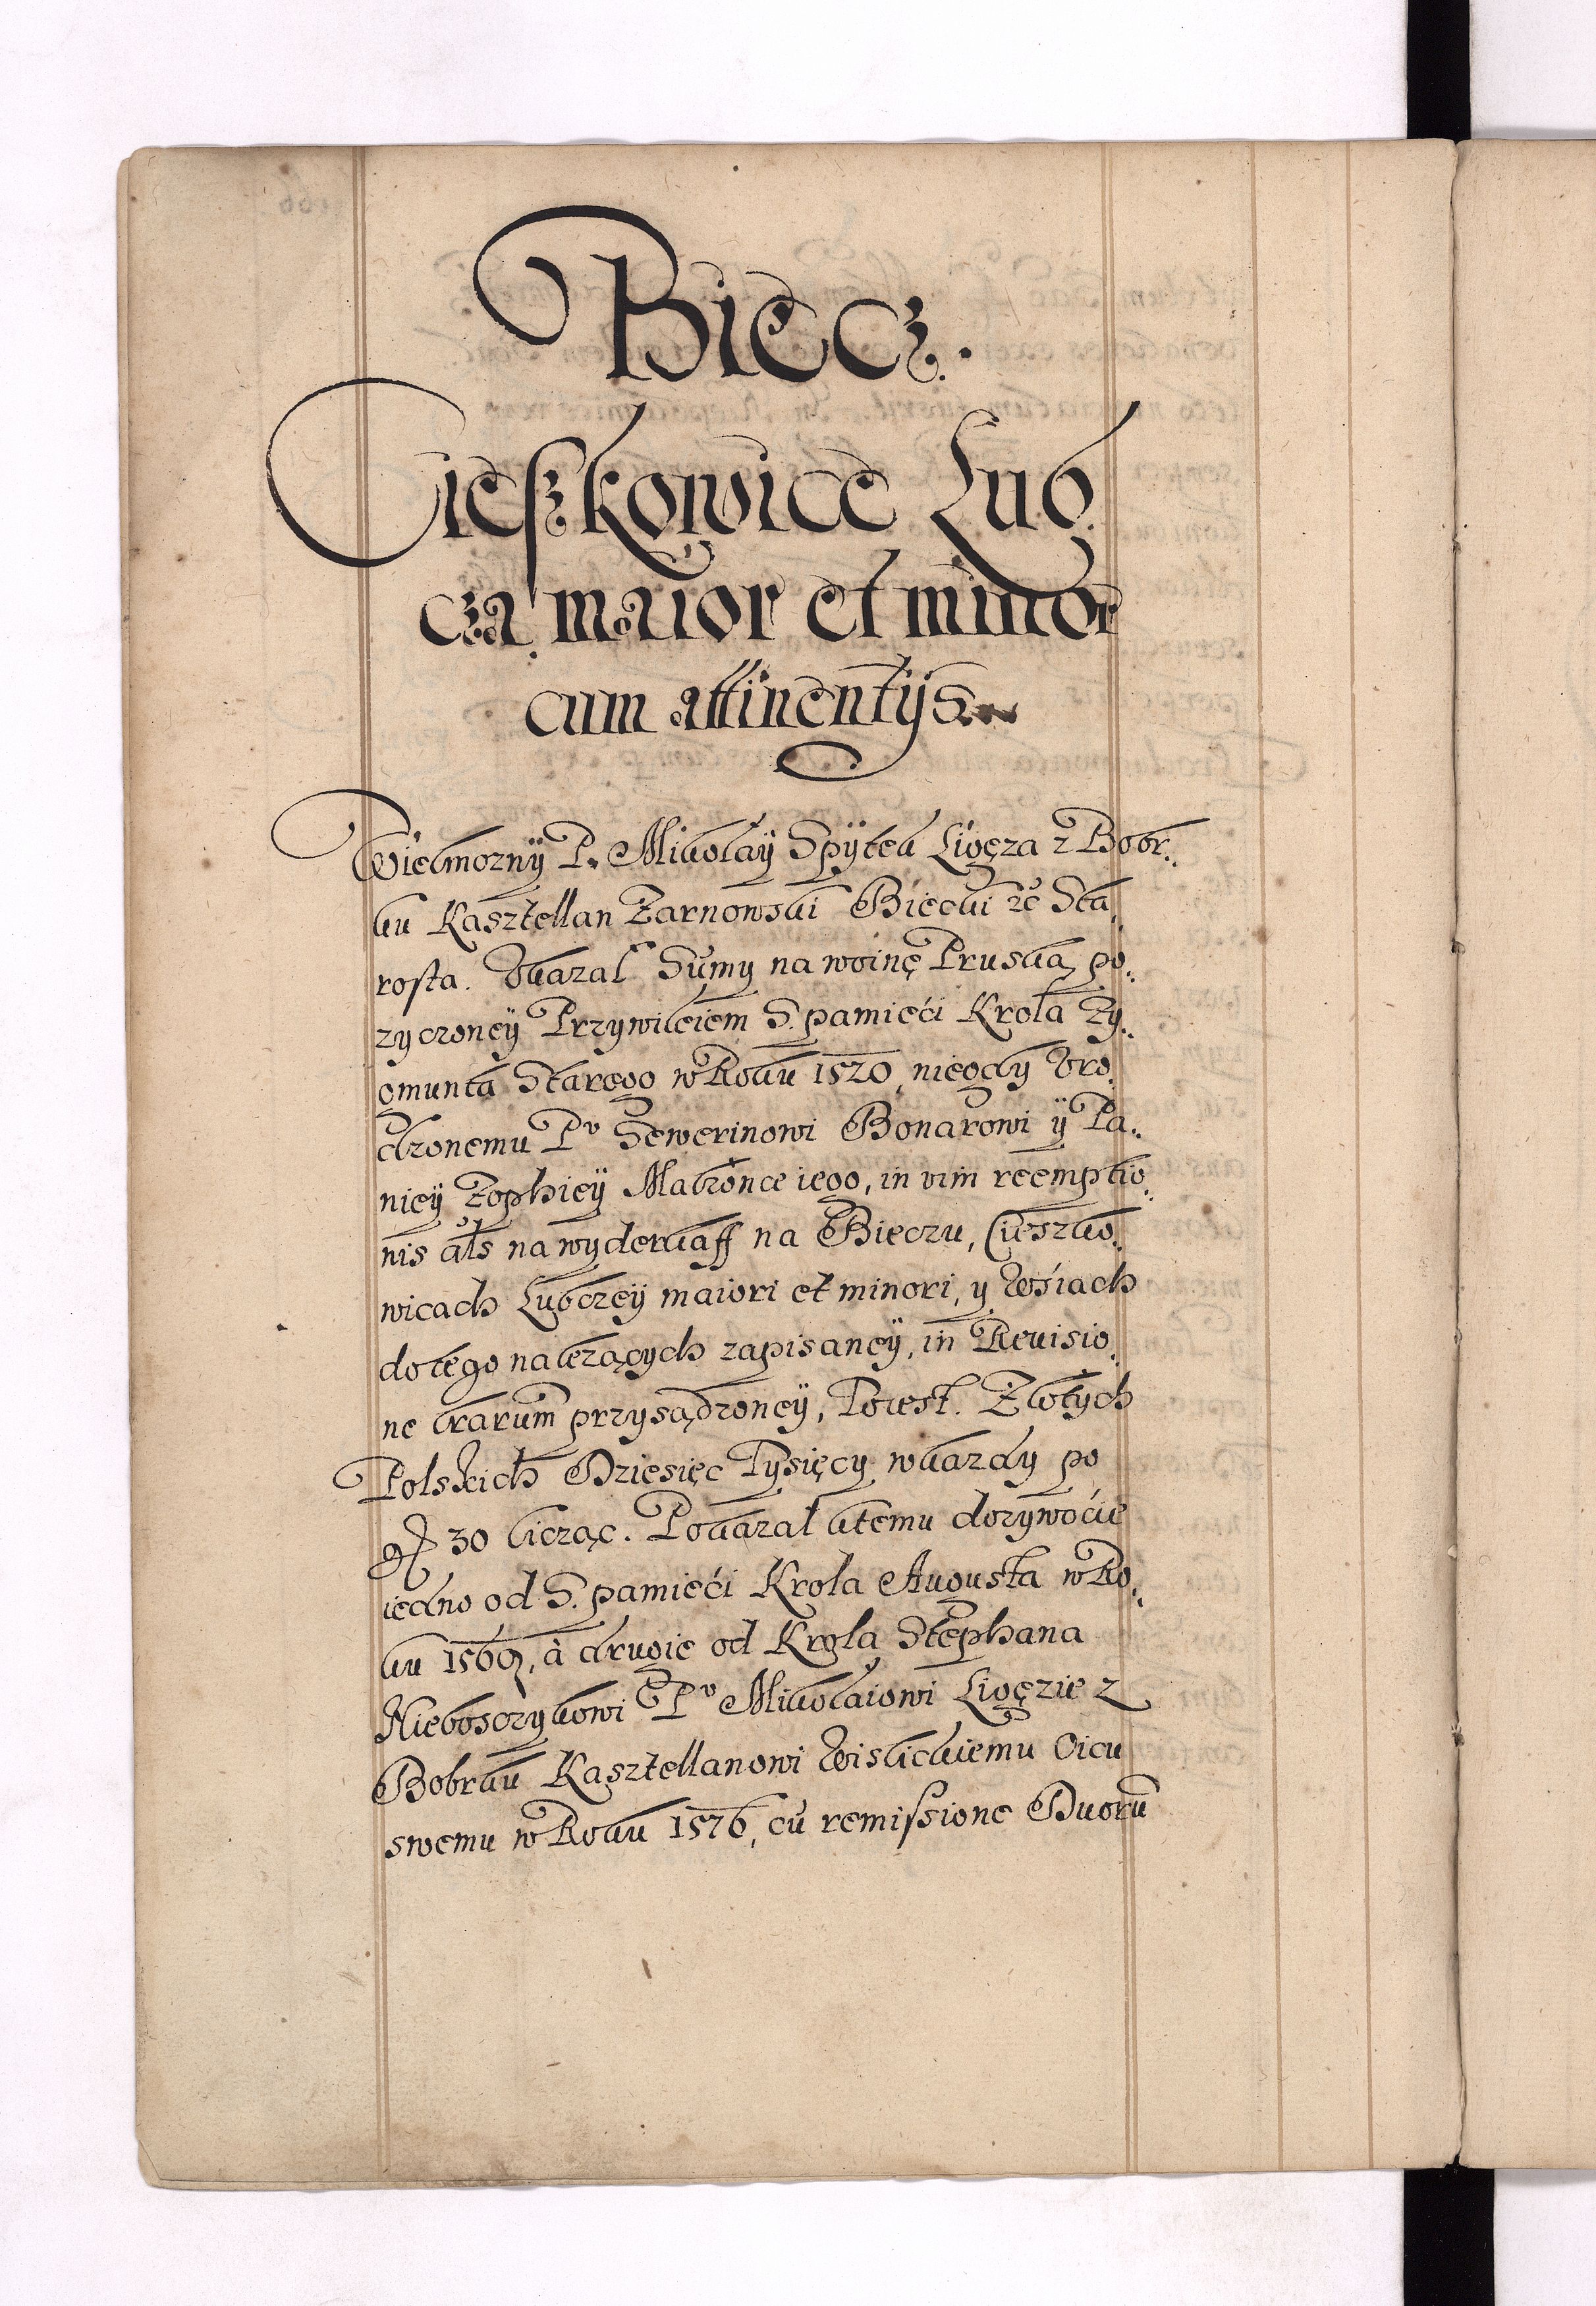 Biecz.
Cieszkowice Lub
cza maior et minor
cum attinentÿs
Wielmoznÿ P. Mikolaÿ Spÿtek Ligęza z Bobr:
ku Kasztellan Zarnowski Biecki etc Sta,
rosta. Vkazal Sumy na woinę Pruską po:
zyczoneÿ Przywileiem S. pamieći Krola Zy:
gmunta Starego w Roku 1520, niegdy Vro,
dzonemu Pu Sewerinowi Bonarowi ÿ Pa:
nieÿ Zophieÿ Malzonce iego, in vim reemptio:
nis als na wyderkaff na Bieczu, Cieszko:
wicach Lubczeÿ maiori et minori, y Wśiach
do tego nalezących zapisaneÿ, in Reuisio,
ne lrarum przysądzoneÿ, To iest. Zlotych
Polskich Dziesięc Tysięcy w kazdy po
gr 30 licząc. Pokazal ktemu dozywoćie
iedno od S. pamieći Krola Augusta w Ro:
ku 1569, à drugie od Krola Stephana
Nieboszczykowi Pu Mikolaiowi Ligęzie z
Bobrku Kasztellanowi Wislickiemu Oicu
swemu w Roku 1576, cu remissione Duoru